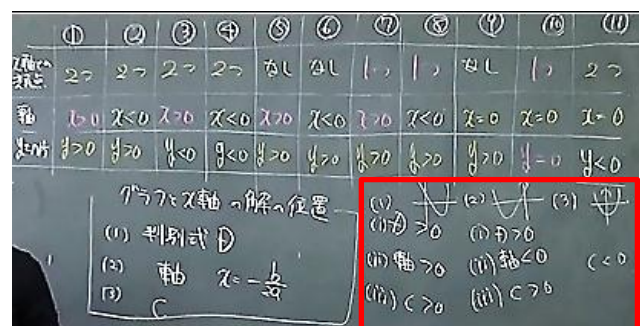 ① ② ③ ④ ⑤ ⑥ ⑦ ⑧ ⑨ ⑩ ⑪
2つ 2つ 2つ 2つ なし なし 1つ 1つ なし 1つ 2つ
軸 x>0 x<0 x>0 x<0 x>0 x<0 x>0 x<0 x=0 x=0 x=0
y>0 y>0 y<0 y<0 y>0 y>0 y>0 y>0 y>0 y=0 y<0
グラフとx軸の解の位置
(1) 判別式 D
(2) 軸 x=-b/2a
(3) C
(1) (2) (3)
(i) D>0 (i) D>0
(ii) 軸>0 (ii) 軸<0 C<0
(iii) C>0 (iii) C>0